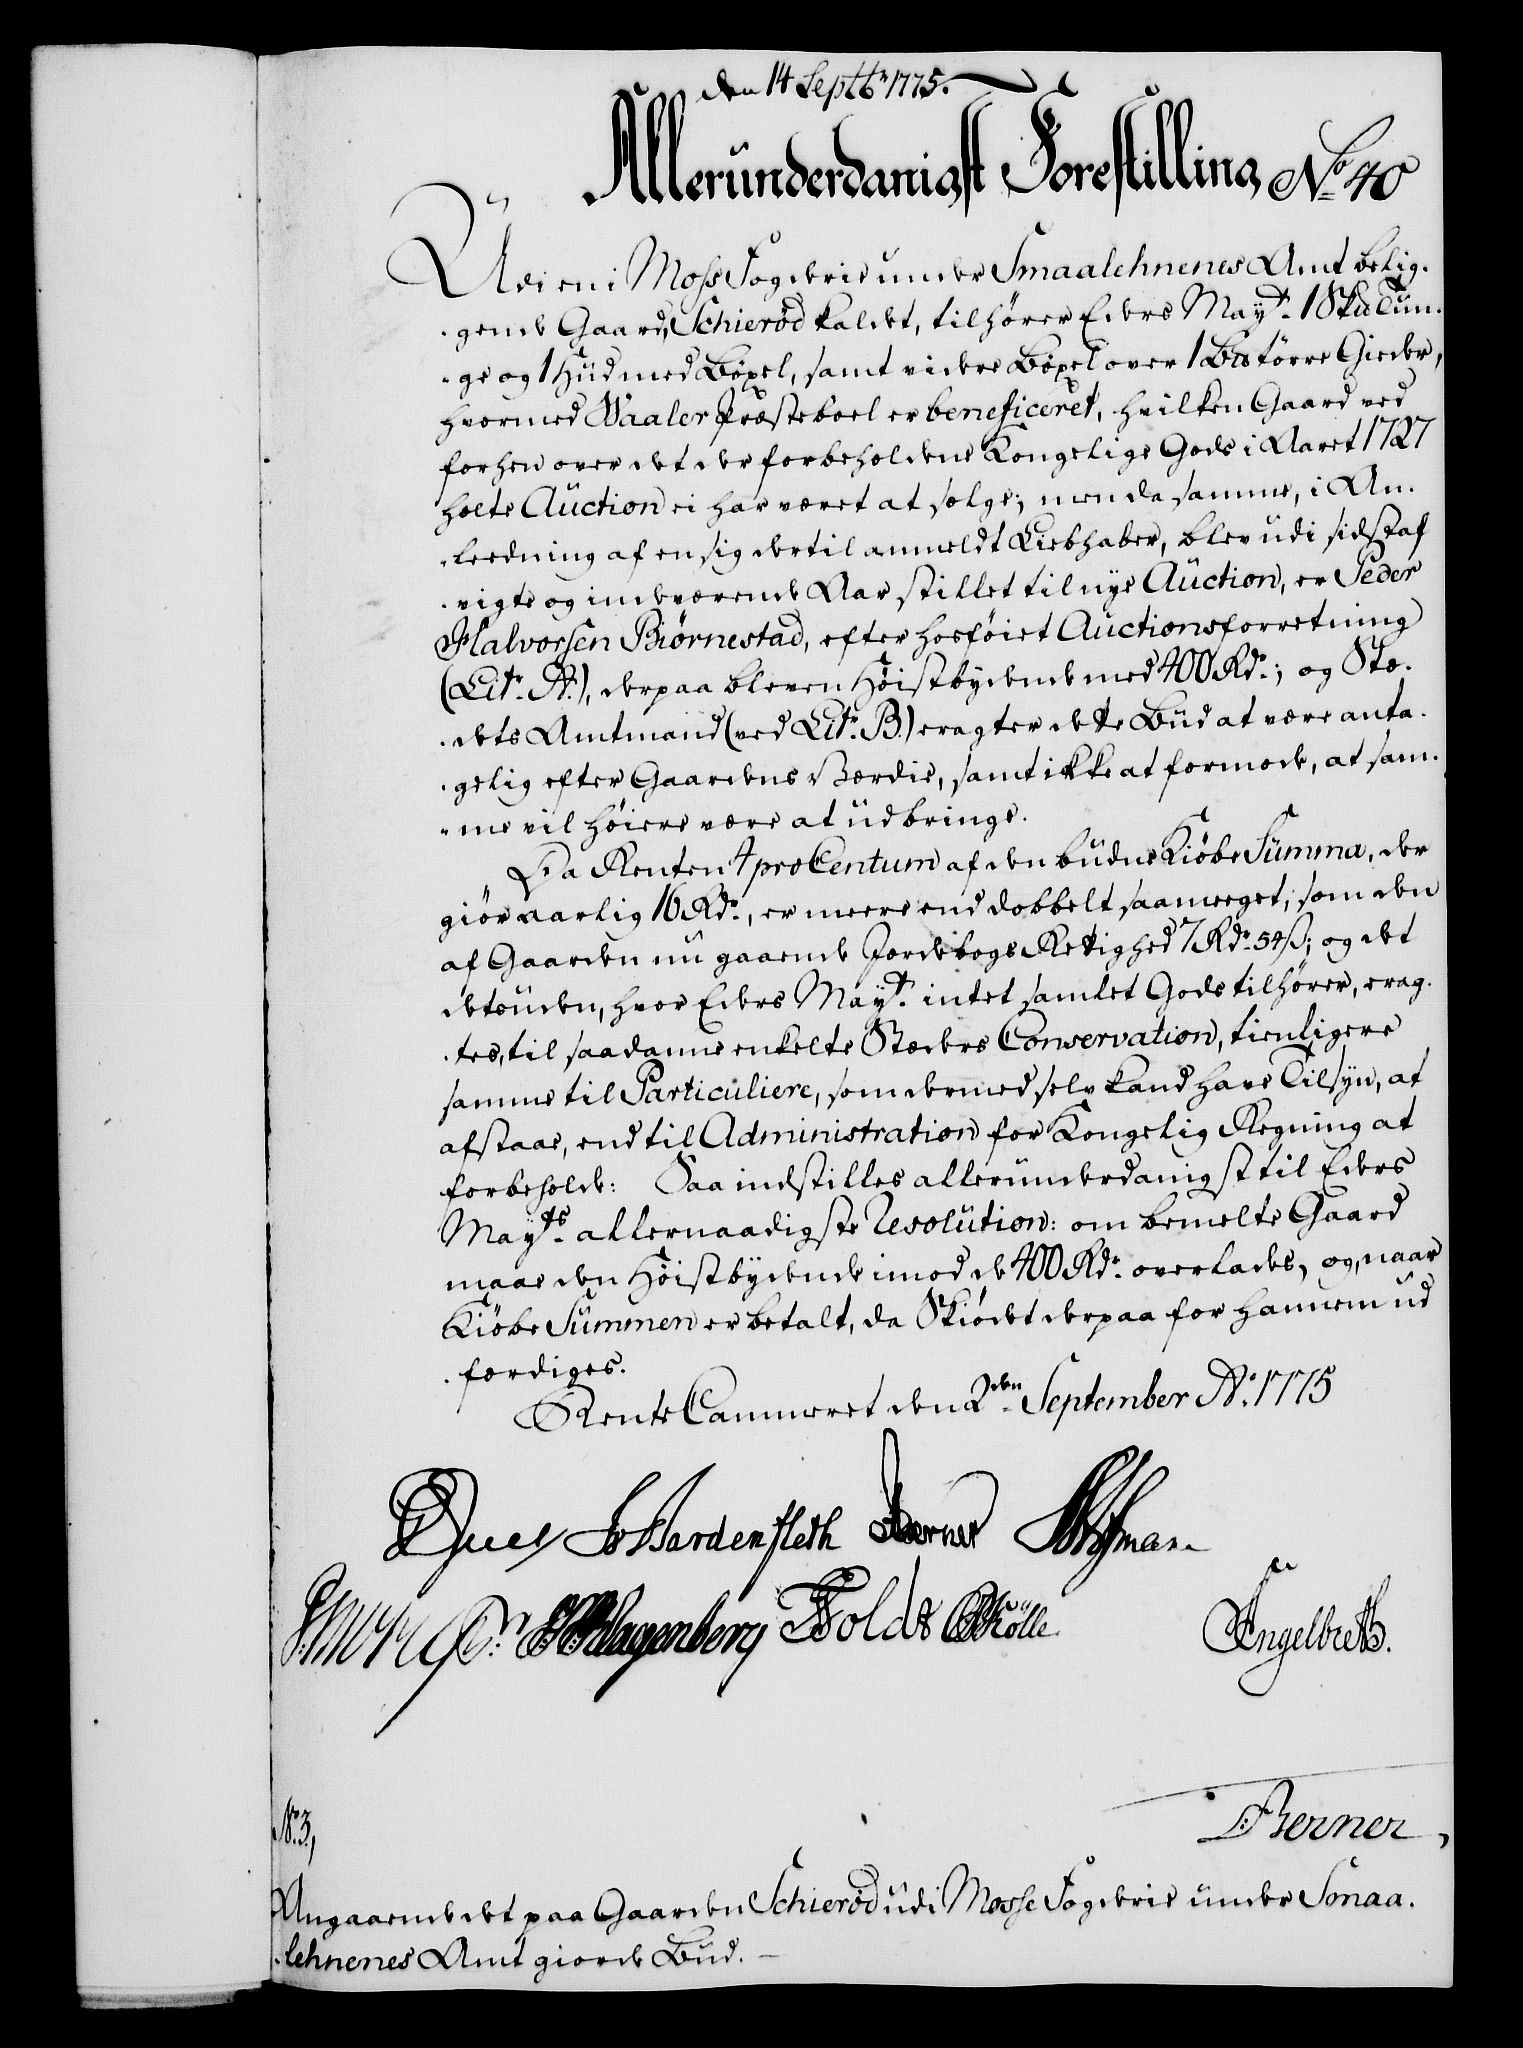 den 14 Septbr 1775.
Alleründerdanigst Forestilling No 40
Udi en i Moss Fogderie under Smaalehnenes Amt belig-
-gende Gaard, Schierød kaldet, tilhører Eders Mayt. 1 Skd Tun-
-ge og 1 Hüd med Böxel, samt videre Böxel over 1 Bd törre Gieder,
hvormed Waaler Præsteboel er beneficeret, hvilken Gaard ved
forhen over det der forbeholdene Kongelige Gods i Aaret 1727
holte Auction ei har været at sølge; men da samme, i An-
-leedning af en sig dertil anmeldt Liebhaber, blev udi sidst af
-vigte og indeværende Aar stillet til nye Auction, er Peder
Halvorsen Biørnestad, efter hosföiet Auctionsforretning
(Litr. A.), derpaa bleven Höistbydende med 400 Rdr.; og Stæ-
-dets Amtmand (ved Litr. B.) eragter dette Büd at være anta-
-gelig efter Gaardens Værdie, samt ikke at formode, at sam-
-me vil höiere være at üdbringe.
Da Renten 4 pro Centum af den budne Kiøbe Sümma, der
giør aarlig 16 Rdr., er meere end dobbelt saameget, som den
af Gaarden nu gaaende Jordebogs Rettighed 7 Rdr. 54 ß; og det
desuden, hvor Eders Mayt. intet samlet Gods tilhører, erag-
-tes, til saadanne enkelte Stæders Conservation, tienligere
samme til Particuliere, som dermed selv kand have Tilsyn, at
afstaae, end til Administration for Kongelig Regning at
forbeholde: Saa indstilles allerunderdanigst til Eders
Mayts. allernaadigste Resolution: om bemelte Gaard
maae den Höistbydende imod de 400 Rdr. overlades, og, naar
Kiøbe Summen er betalt, da Skiødet derpaa for hannem ud
-færdiges.
Rente Cammeret den 2den September Ao. 1775
Juel J Hardenfleth Berner
Klagenberg Holdt Kølle Engelbreth.
Berner,
No. 3,
Angaaende det paa Gaarden Schierød udi Mosse Fogderie under Smaa-
-lehnenes Amt giorde Bud. —